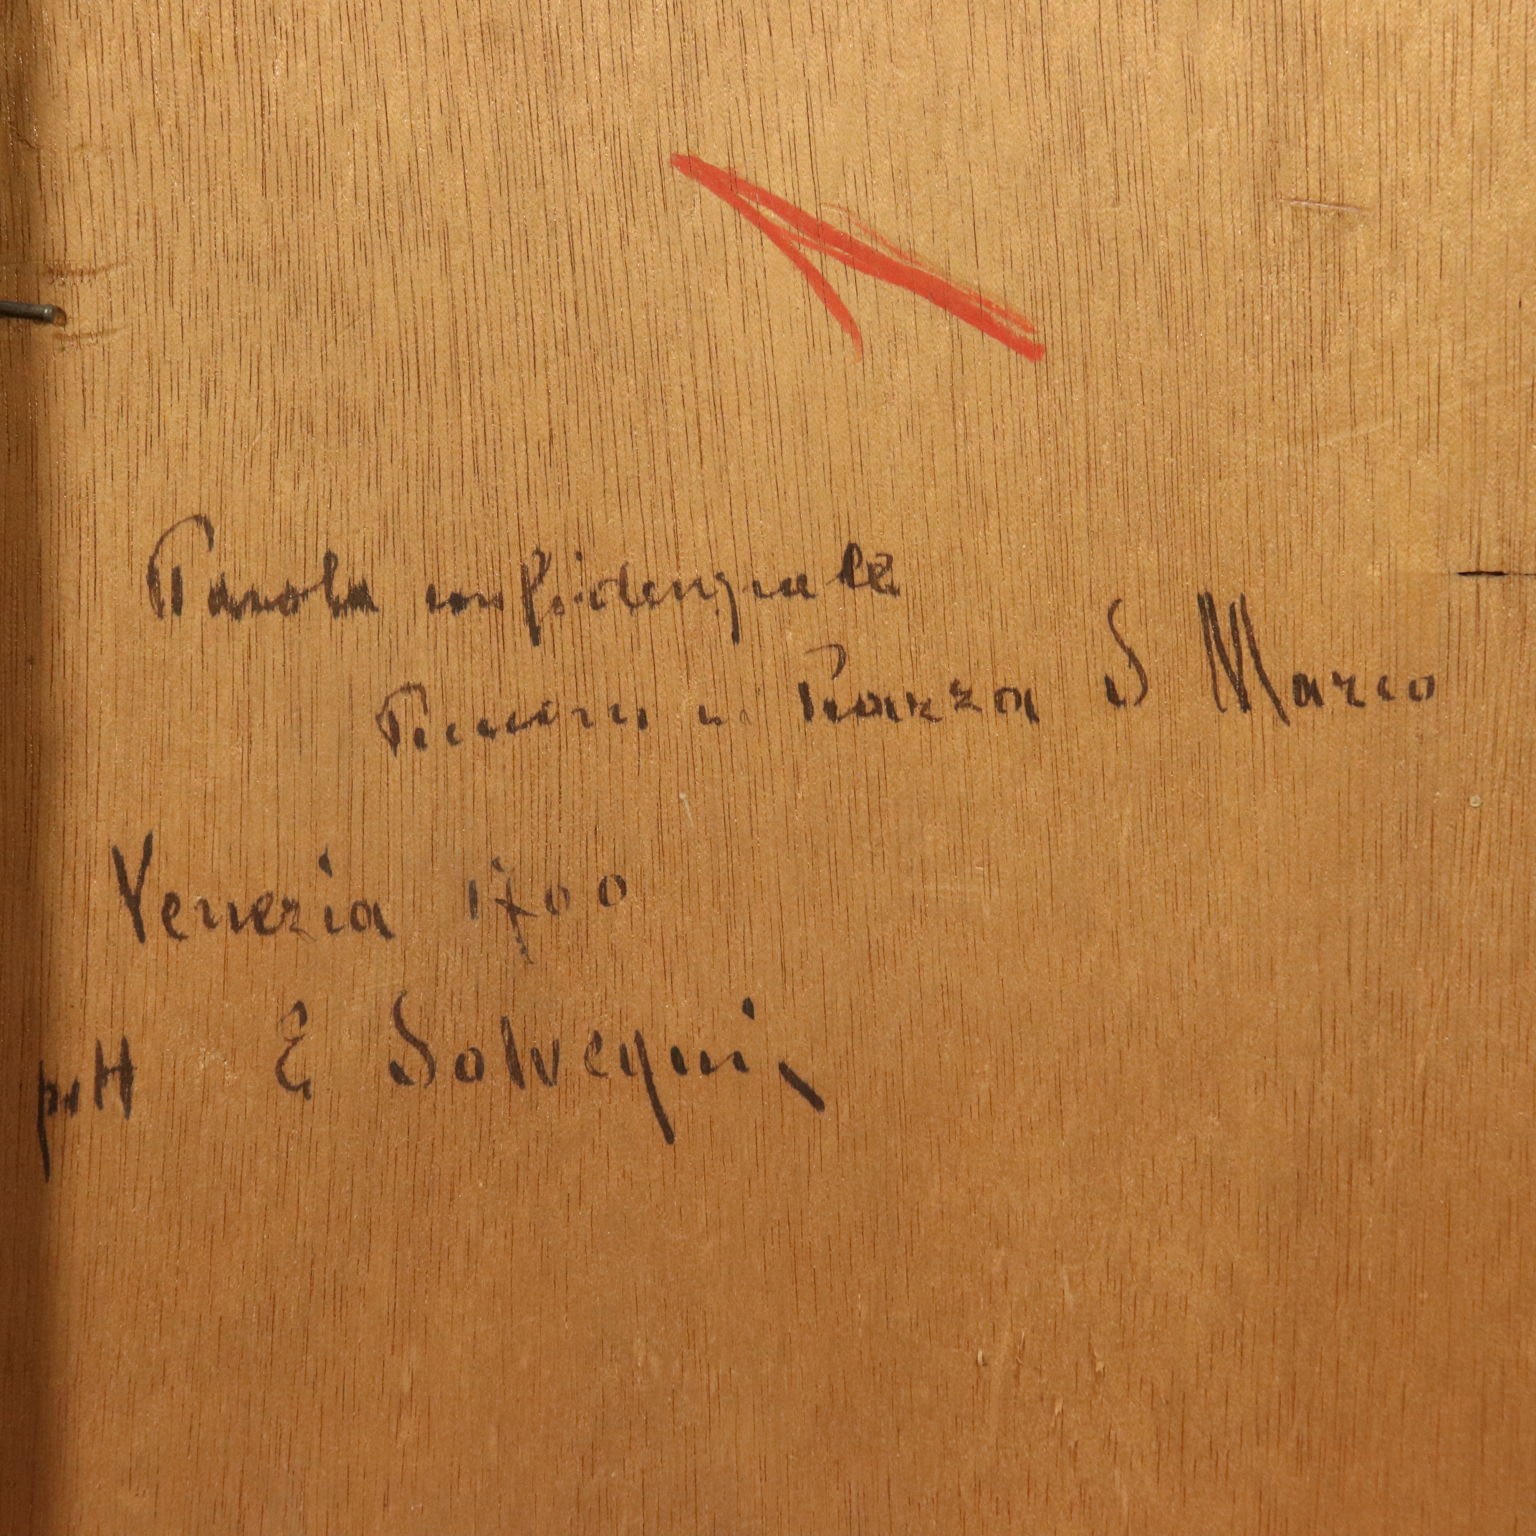 Parola confidenziale
Piccioni in Piazza S Marco
Venezia 1700
pitt E Salvegni